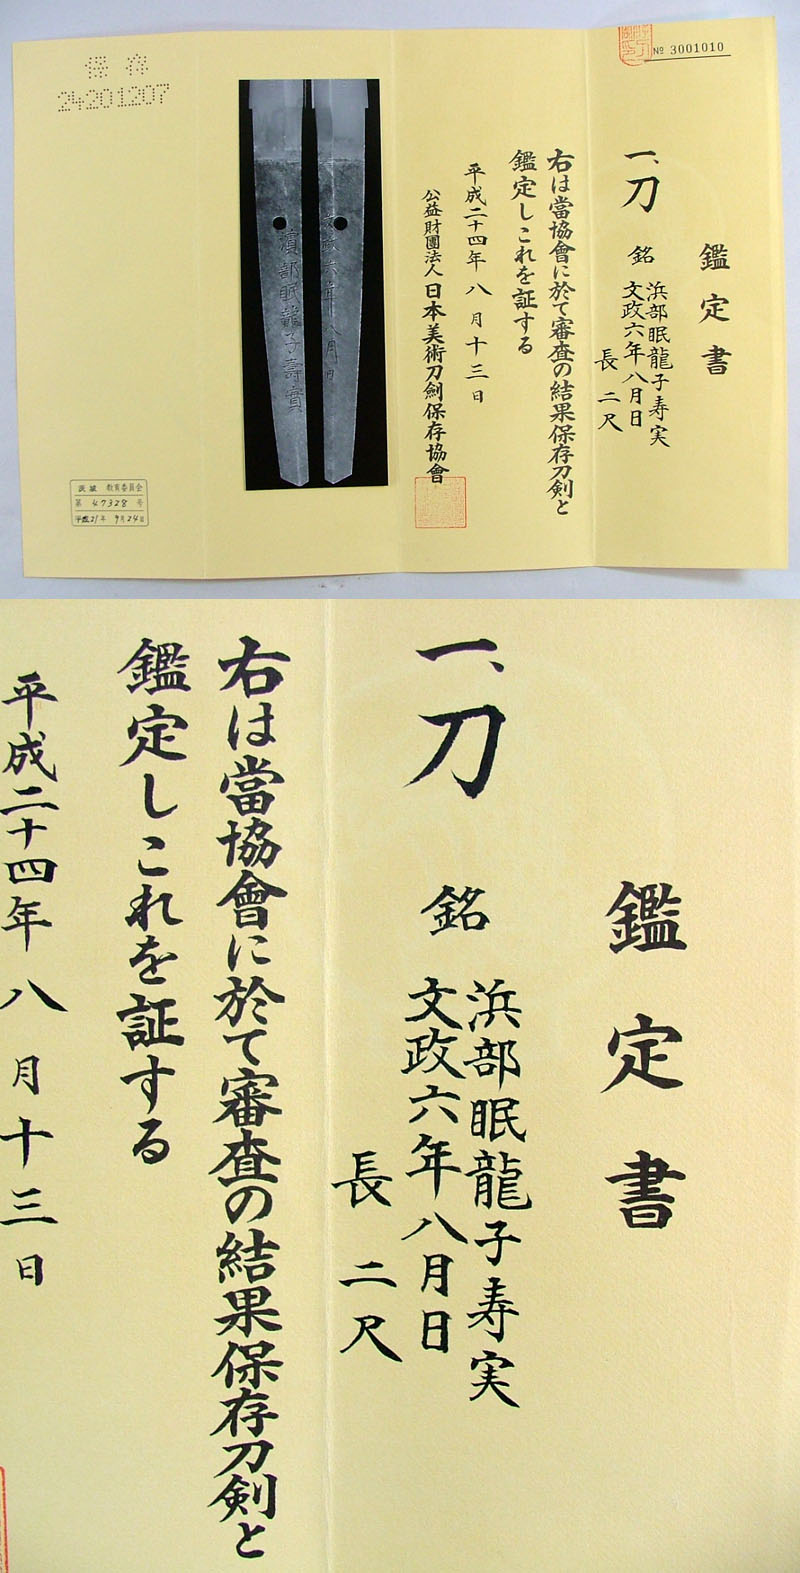 № 3001010
鑑定書
一、刀
銘 浜部眠龍子寿実
文政六年八月日
長 二尺
右は當協會に於て審査の結果保存刀剣と
鑑定しこれを証する
平成二十四年 八 月 十 三 日
公益財團法人 日本美術刀劍保存協會
濵部眠龍子壽實
文政六年八月日
保存
24201207
茨城 教育委員会
第 47328 号
平成21年 9月24日
鑑定書
一、刀
銘 浜部眠龍子寿実
文政六年八月日
長 二尺
右は當協會に於て審査の結果保存刀剣と
鑑定しこれを証する
平成二十四年 八 月 十 三 日